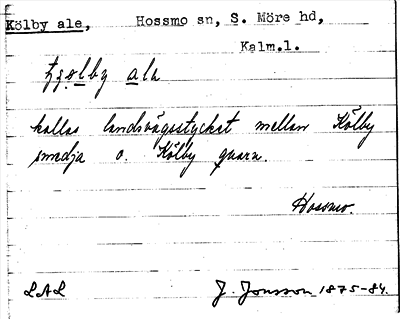 Kölby ale, Hossmo sn, S. Möre hd,
Kalm.l.
kallas landsvägsstycket mellan Kölby
smedja o. Kölby quarn.
Hossmo.
LAL J. Jonsson 1875-84.